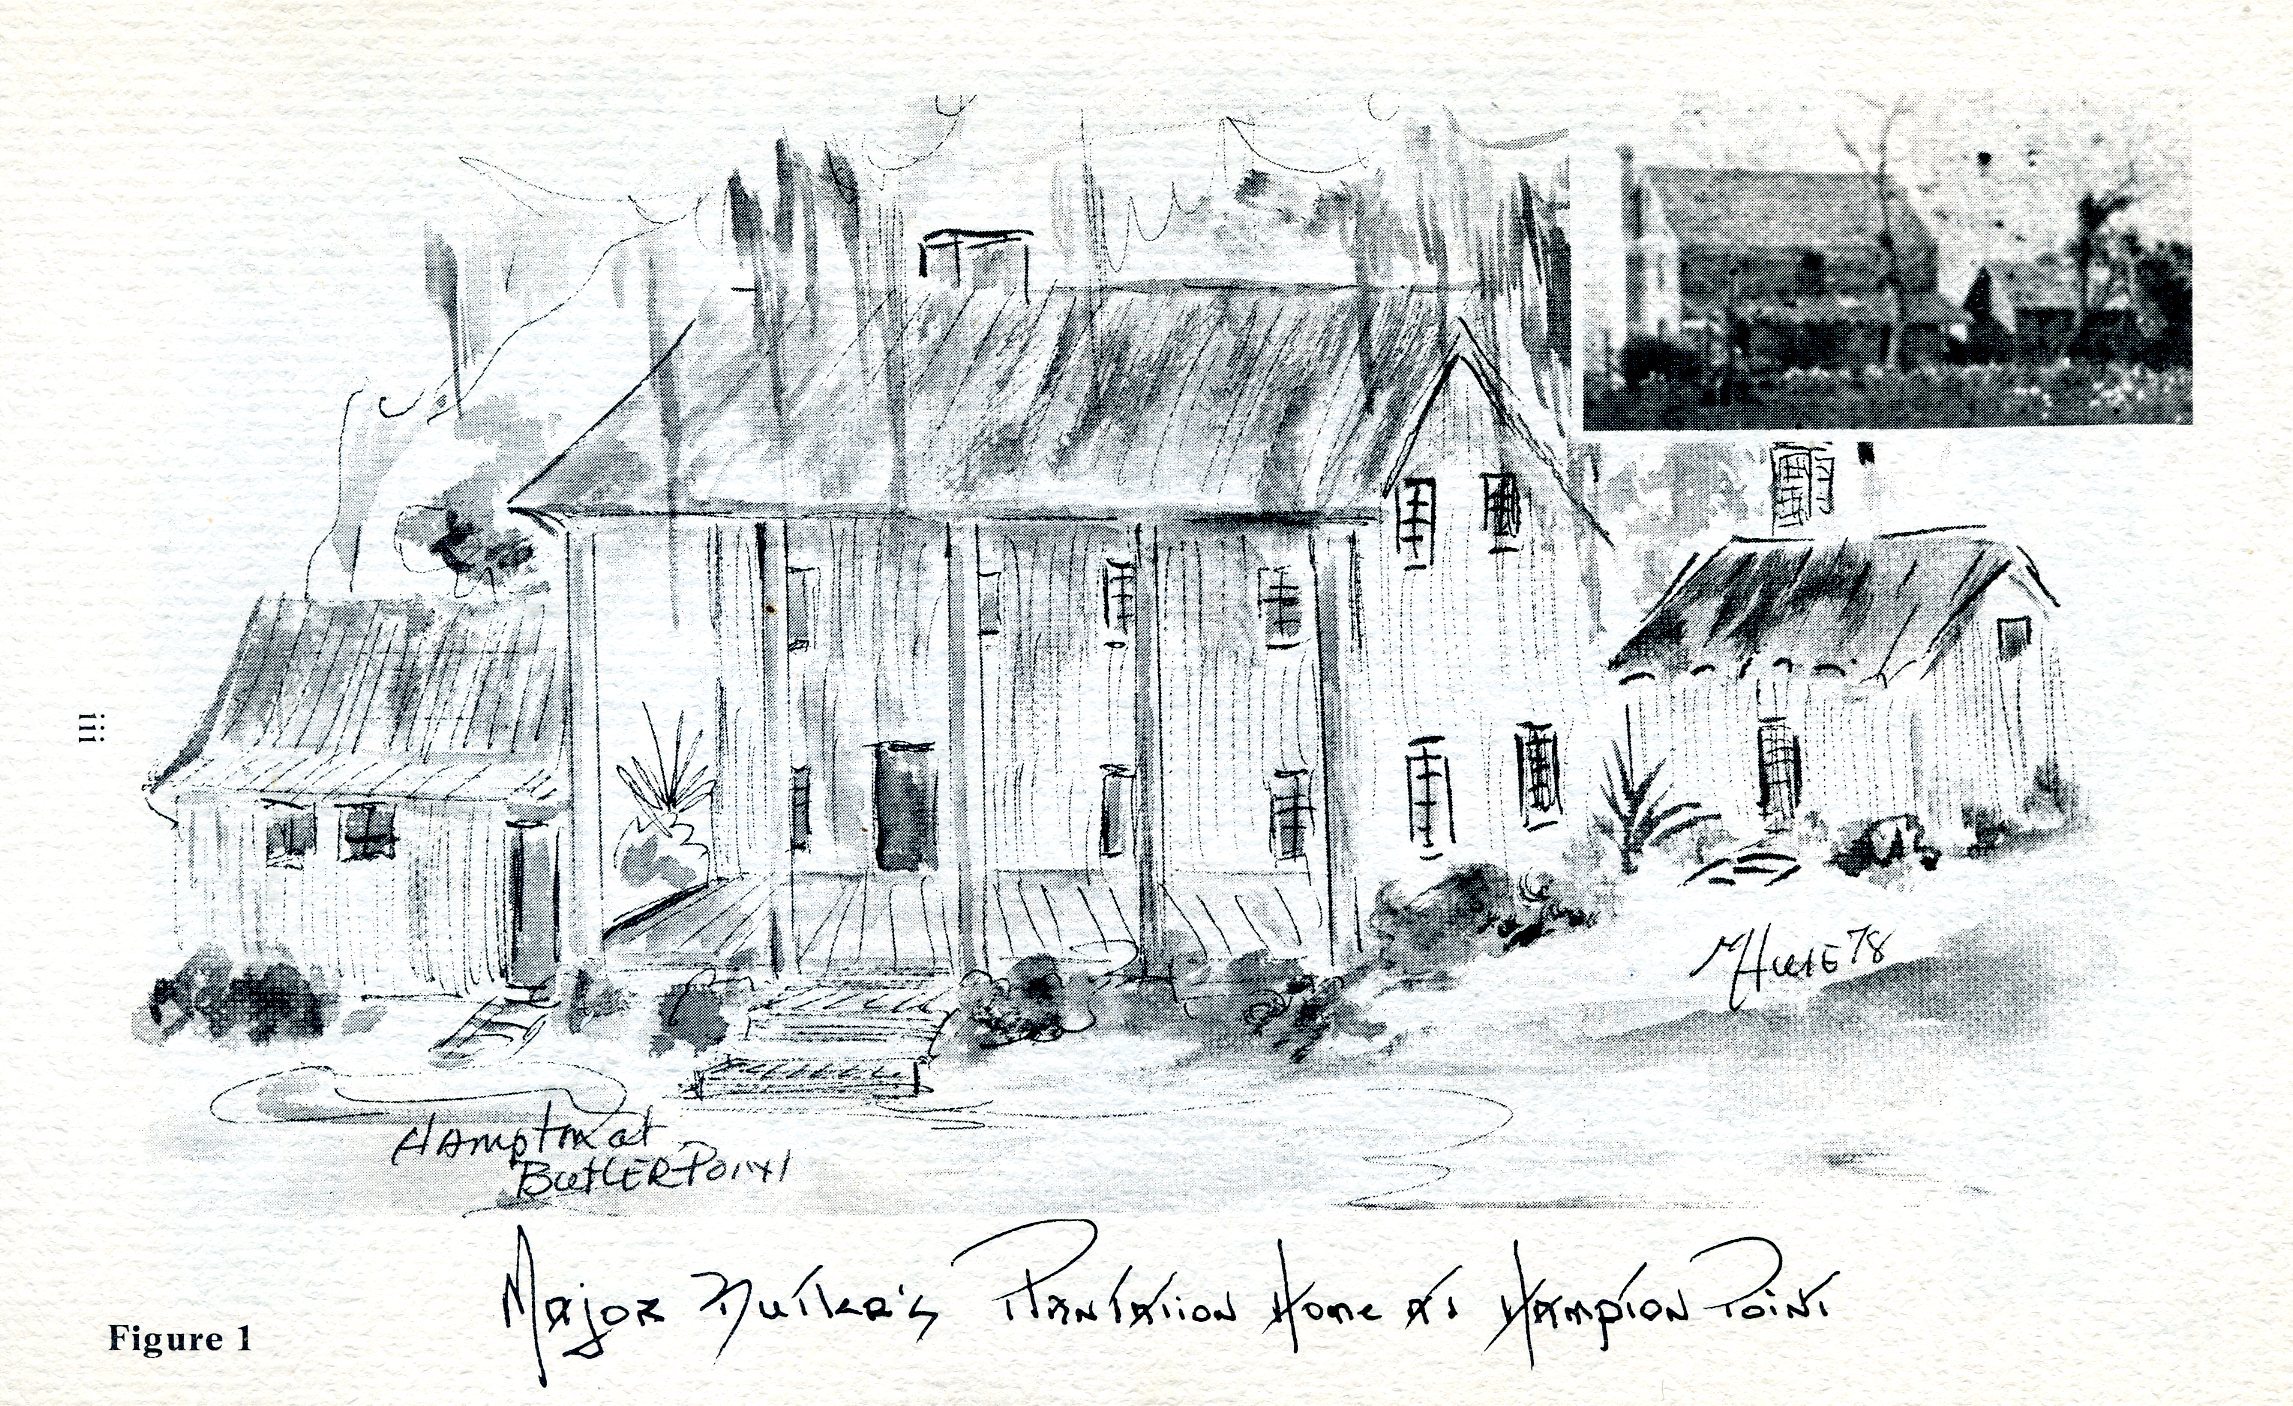 iii
Hampton at
Butler Point
Major Butler's Plantation Home at Hampton Point
Figure 1
78